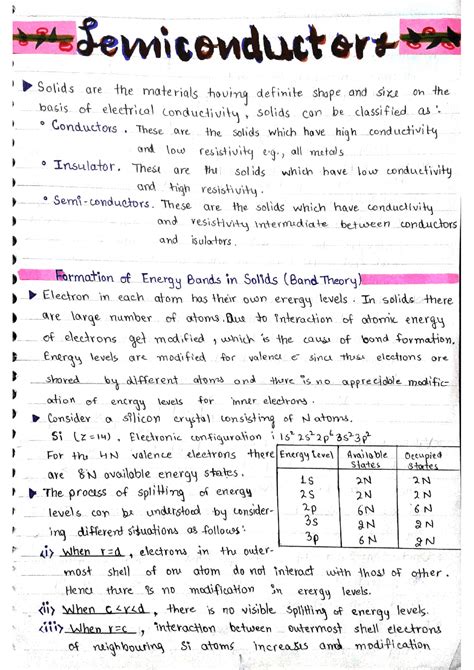 Semiconductors
Solids are the materials having definite shape and size on the
basis of electrical conductivity, solids can be classified as:
° Conductors. These are the solids which have high conductivity
and low resistivity e.g., all metals
° Insulator. These are the solids which have low conductivity
and high resistivity.
° Semi-conductors. These are the solids which have conductivity
and resistivity intermediate between conductors
and isulators.
Formation of Energy Bands in Solids (Band Theory)
Electron in each atom has their own energy levels. In solids there
are large number of atoms. Due to interaction of atomic energy
of electrons get modified, which is the cause of bond formation.
Energy levels are modified for valence e⁻ since these electrons are
shared by different atoms and there is no apprecidble modific-
ation of energy levels for inner electrons.
Consider a silicon crystal consisting of N atoms.
Si (z=14), Electronic configuration : 1s² 2s² 2p⁶ 3s² 3p²
For the 4N valence electrons there
are 8N available energy states.
Energy Level Available States Occupied states
1s 2N 2N
2s 2N 2N
2p 6N 6N
3s 2N 2N
3p 6N 2N
The process of splitting of energy
levels can be understood by consider-
ing different situations as follows:
(i) When r=d, electrons in the outer-
most shell of one atom do not interact with those of other.
Hence there is no modification in energy levels.
(ii) When c<r<d, there is no visible splitting of energy levels.
(iii) When r=c, interaction between outermost shell electrons
of neighbouring Si atoms increases and modification